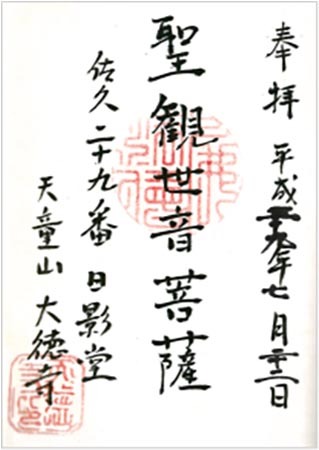 奉拝 平成二十九年七月日
聖観世音菩薩
佐久二十九番日影堂
天童山大徳寺